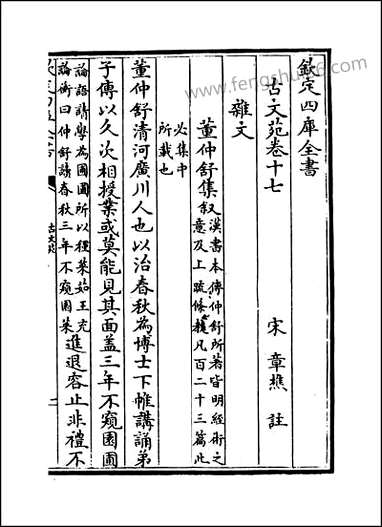 欽定四庫全書
古文苑卷十七
宋 章樵 註
雜文
董仲舒集叙 漢書本傳仲舒所著皆明經術之
意及上疏條教凡百二十三篇此
必集中
所載也
董仲舒清河廣川人也以治春秋為博士下帷講誦弟
子傳以久次相授業或莫能見其面盖三年不窺園圃
論語請學為圃圃所以種菜茹王充
論衡曰仲舒讀春秋三年不窺園菜 進退容止非禮不
古文苑